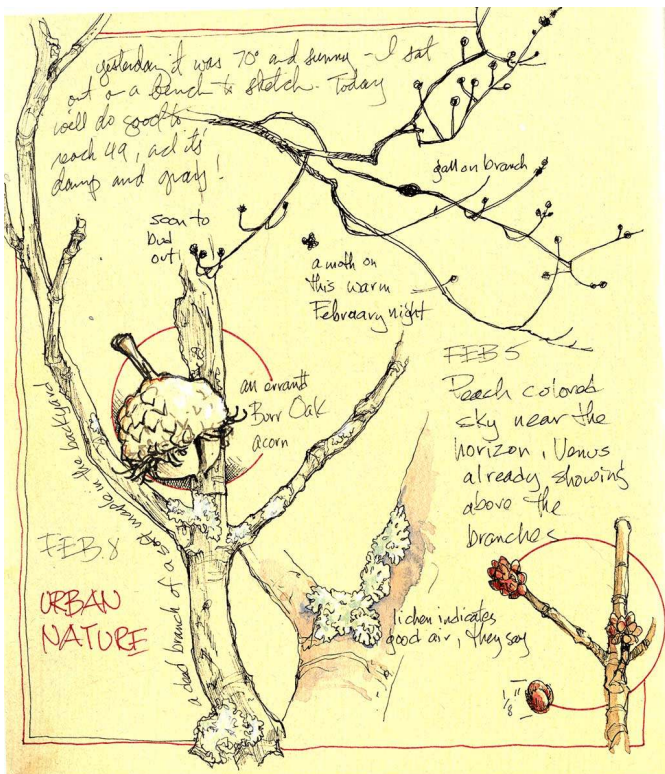 yesterday it was 70° and sunny - I sat
out on a bench to sketch. Today
we'll do good to
reach 49, and it's
damp and gray!
gall on branch
soon to
bud
out
a moth on
this warm
February night
FEB 5
Peach colored
sky near the
horizon, Venus
already showing
above the
branches
an errant
Burr Oak
acorn
FEB 8
a dead branch of a soft maple in the backyard
URBAN
NATURE
lichen indicates
good air, they say
1/8"